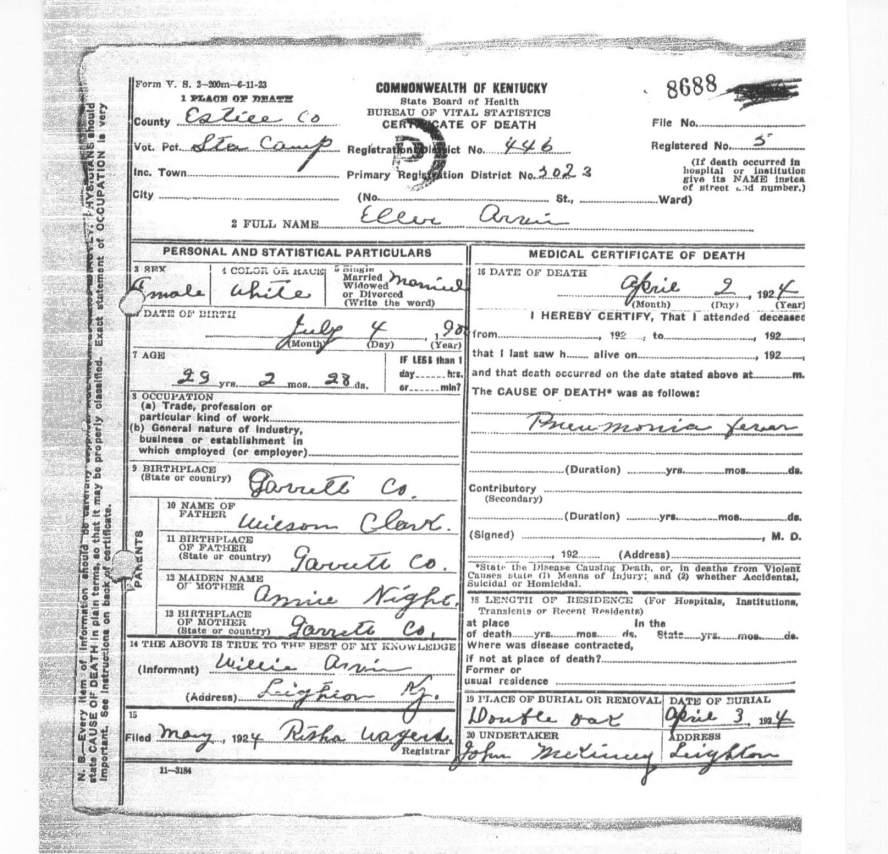 Form V. S. 3-200m-6-11-23
COMMONWEALTH OF KENTUCKY
State Board of Health
BUREAU OF VITAL STATISTICS
CERTIFICATE OF DEATH
8688
1 PLACE OF DEATH
County Estill Co
File No.
Vot. Pct. Sta Camp
Registration District No. 446
Registered No. 5
Inc. Town
Primary Registration District No. 3023
(If death occurred in
hospital or institution
give its NAME instea
of street and number.)
City
(No. St., Ward)
2 FULL NAME Ellen Arvin
PERSONAL AND STATISTICAL PARTICULARS
3 SEX
Fmale
4 COLOR OR RACE
White
5 Single
Married
Widowed
or Divorced
(Write the word)
Married
DATE OF BIRTH
July 4, 190
(Month) (Day) (Year)
7 AGE
29 yrs. 2 mos. 28 ds.
IF LESS than 1
day hrs.
or min?
8 OCCUPATION
(a) Trade, profession or
particular kind of work
(b) General nature of industry,
business or establishment in
which employed (or employer)
9 BIRTHPLACE
(State or country) Garrett Co.
PARENTS
10 NAME OF
FATHER Wilson Clark.
11 BIRTHPLACE
OF FATHER
(State or country) Garrett Co.
12 MAIDEN NAME
OF MOTHER Annie Night.
13 BIRTHPLACE
OF MOTHER
(State or country) Garrett Co.
14 THE ABOVE IS TRUE TO THE BEST OF MY KNOWLEDGE
(Informant) Willie Arvin
(Address) Leighton Ky.
15
Filed May, 1924 Risha
Registrar
11-3184
MEDICAL CERTIFICATE OF DEATH
16 DATE OF DEATH
April 2, 1924
(Month) (Day) (Year)
I HEREBY CERTIFY, That I attended deceased
from , 192 , to , 192
that I last saw h alive on , 192
and that death occurred on the date stated above at m.
The CAUSE OF DEATH* was as follows:
Pneumonia fever
(Duration) yrs. mos. ds.
Contributory
(Secondary)
(Duration) yrs. mos. ds.
(Signed) , M. D.
, 192 (Address)
*State the Disease Causing Death, or, in deaths from Violent
Causes state (1) Means of Injury; and (2) whether Accidental,
Suicidal or Homicidal.
18 LENGTH OF RESIDENCE (For Hospitals, Institutions,
Transients or Recent Residents)
at place In the
of death yrs. mos. ds. State yrs. mos. ds.
Where was disease contracted,
if not at place of death?
Former or
usual residence
19 PLACE OF BURIAL OR REMOVAL
Double oak
DATE OF BURIAL
April 3, 1924
20 UNDERTAKER
John McKinney
ADDRESS
Leighton
N. B.—Every item of information should be carefully supplied. PHYSICIANS should
state CAUSE OF DEATH in plain terms, so that it may be properly classified. Exact statement of OCCUPATION is very
important. See instructions on back of certificate.